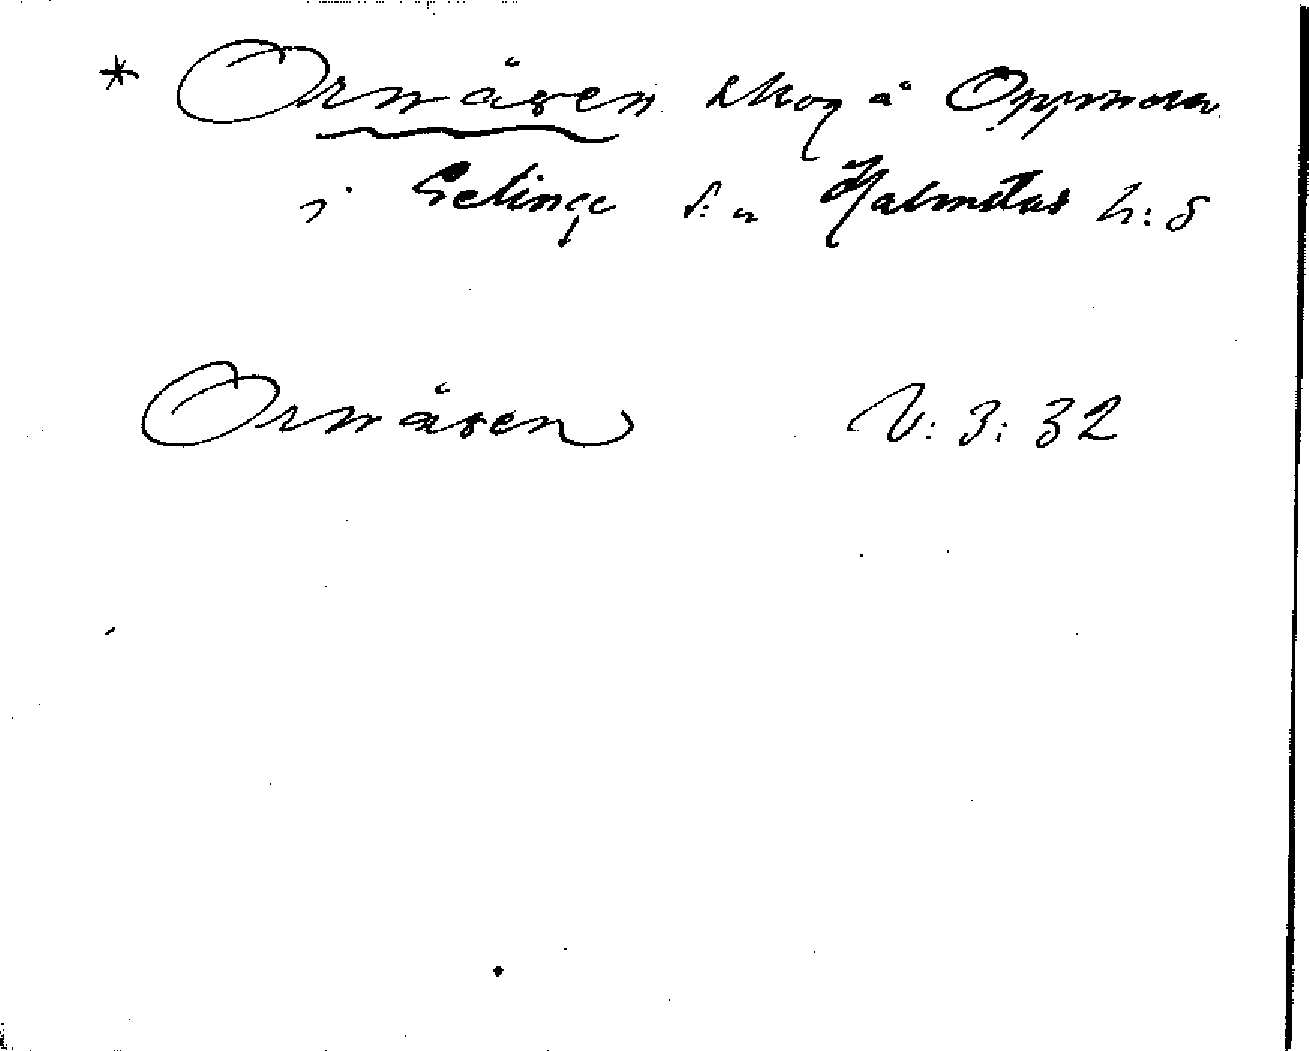 * Ormåsen skog å Oppmora
i Getinge s: n Halmstas h: d
Ormåsen V: 3: 32